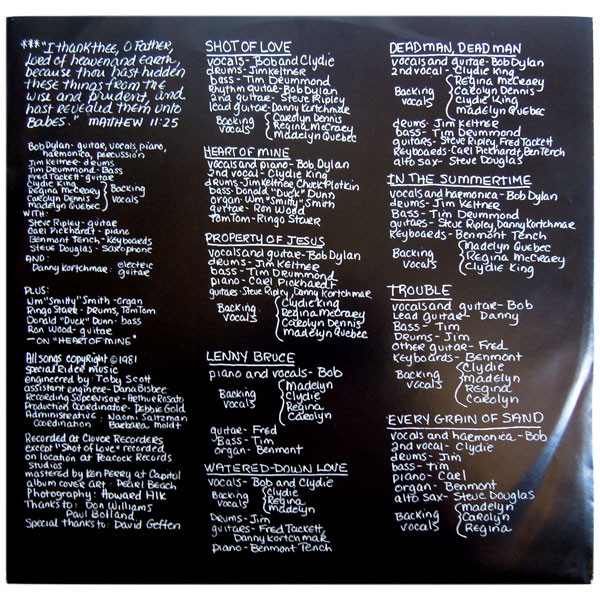 ***"I thank thee, O Father,
Lord of heaven and earth,
because thou hast hidden
these things from the
wise and prudent, and
hast revealed them unto
Babes." MATTHEW 11:25
Bob Dylan - guitar, vocals, piano,
harmonica, percussion
Jim Keltner - drums
Tim Drummond - Bass
Fred Tackett - guitar
Clydie King
Regina McCrarey
Carolyn Dennis
Madelyn Quebec
Backing
vocals
WITH:
Steve Ripley - guitar
Carl Pickhardt - piano
Benmont Tench - Keyboards
Steve Douglas - Saxophone
AND:
Danny Kortchmar - electric
guitar
PLUS:
Wm "Smitty" Smith - Organ
Ringo Starr - Drums, TomTom
Donald "Duck" Dunn - bass
Ron Wood - guitar
— ON "HEART OF MINE"
All songs copyright © 1981
Special Rider Music
engineered by: Toby Scott
assistant engineer - Dana Bisbee
Recording Supervisor - Arthur Rosato
Production Coordinator - Debbie Gold
Administrative coordination: Naomi Saltzman
Barbara Moldt
Recorded at Clover Recorders
except "Shot of Love" recorded
on location at Peacock Records
Studios
mastered by Ken Perry at Capitol
album cover art: Pearl Beach
Photography: Howard Alk
Thanks to: Don Williams
Paul Bolland
Special thanks to: David Geffen
SHOT OF LOVE
vocals - Bob and Clydie
drums - Jim Keltner
bass - Tim Drummond
Rhythm guitar - Bob Dylan
2nd guitar - Steve Ripley
lead guitar - Danny Kortchmar
Backing
vocals
Carolyn Dennis
Regina McCraey
Madelyn Quebec
HEART OF MINE
vocals and piano - Bob Dylan
2nd vocal - Clydie King
drums - Jim Keltner, Chuck Plotkin
Bass - Donald "Duck" Dunn
organ - Wm "Smitty" Smith
guitar - Ron Wood
TomTom - Ringo Starr
PROPERTY OF JESUS
vocals and guitar - Bob Dylan
drums - Jim Keltner
bass - Tim Drummond
piano - Carl Pickhardt
guitars - Steve Ripley, Danny Kortchmar
Backing
vocals
Clydie King
Regina McCraey
Carolyn Dennis
Madelyn Quebec
LENNY BRUCE
piano and vocals - Bob
Backing
vocals
Madelyn
Clydie
Regina
Carolyn
guitar - Fred
Bass - Tim
organ - Benmont
WATERED-DOWN LOVE
vocals - Bob and Clydie
Backing
vocals
Clydie
Regina
Madelyn
Drums - Jim
guitars - Fred Tackett,
Danny Kortchmar
piano - Benmont Tench
DEAD MAN, DEAD MAN
vocals and guitar - Bob Dylan
2nd vocal - Clydie King
Backing
vocals
Regina McCraey
Carolyn Dennis
Clydie King
Madelyn Quebec
drums - Jim Keltner
bass - Tim Drummond
guitars - Steve Ripley, Fred Tackett
Keyboards - Carl Pickhardt, Ben Tench
alto sax - Steve Douglas
IN THE SUMMERTIME
vocals and harmonica - Bob Dylan
drums - Jim Keltner
Bass - Tim Drummond
guitars - Steve Ripley, Danny Kortchmar
keyboards - Benmont Tench
Backing
vocals
Madelyn Quebec
Regina McCraey
Clydie King
TROUBLE
vocals and guitar - Bob
Lead guitar - Danny
Bass - Tim
Drums - Jim
other guitar - Fred
Keyboards - Benmont
Backing
vocals
Clydie
Madelyn
Regina
Carolyn
EVERY GRAIN OF SAND
vocals and harmonica - Bob
2nd vocal - Clydie
drums - Jim
bass - Tim
piano - Carl
organ - Benmont
alto sax - Steve Douglas
Backing
vocals
Madelyn
Carolyn
Regina